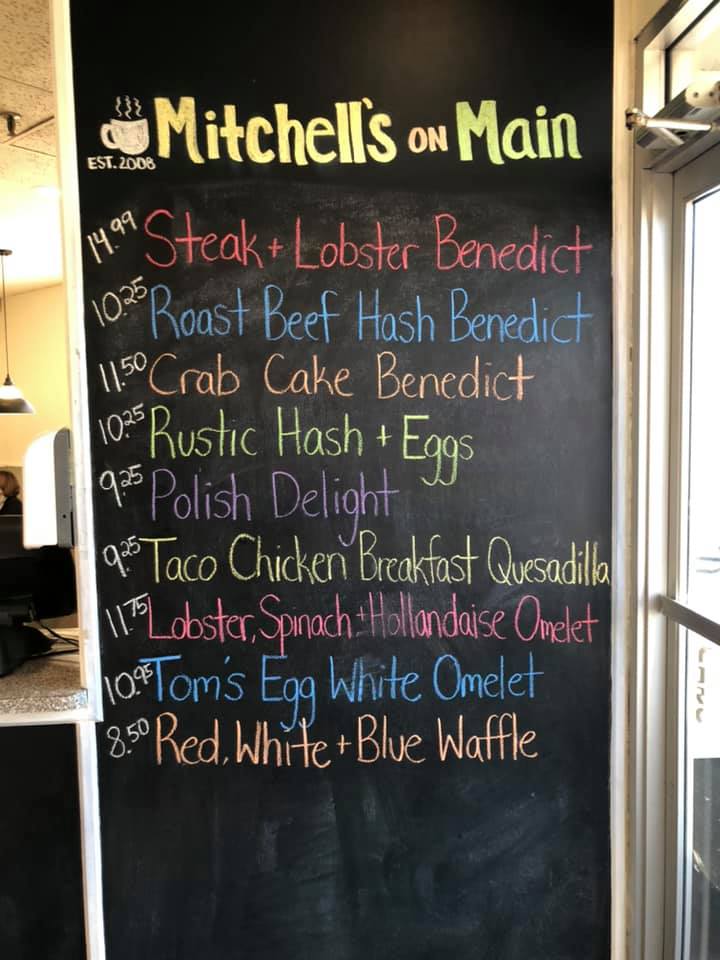 Mitchell's ON Main
EST. 2008
14.99 Steak + Lobster Benedict
10.25 Roast Beef Hash Benedict
11.50 Crab Cake Benedict
10.25 Rustic Hash + Eggs
9.25 Polish Delight
9.25 Taco Chicken Breakfast Quesadilla
11.75 Lobster, Spinach + Hollandaise Omelet
10.95 Tom's Egg White Omelet
8.50 Red, White + Blue Waffle